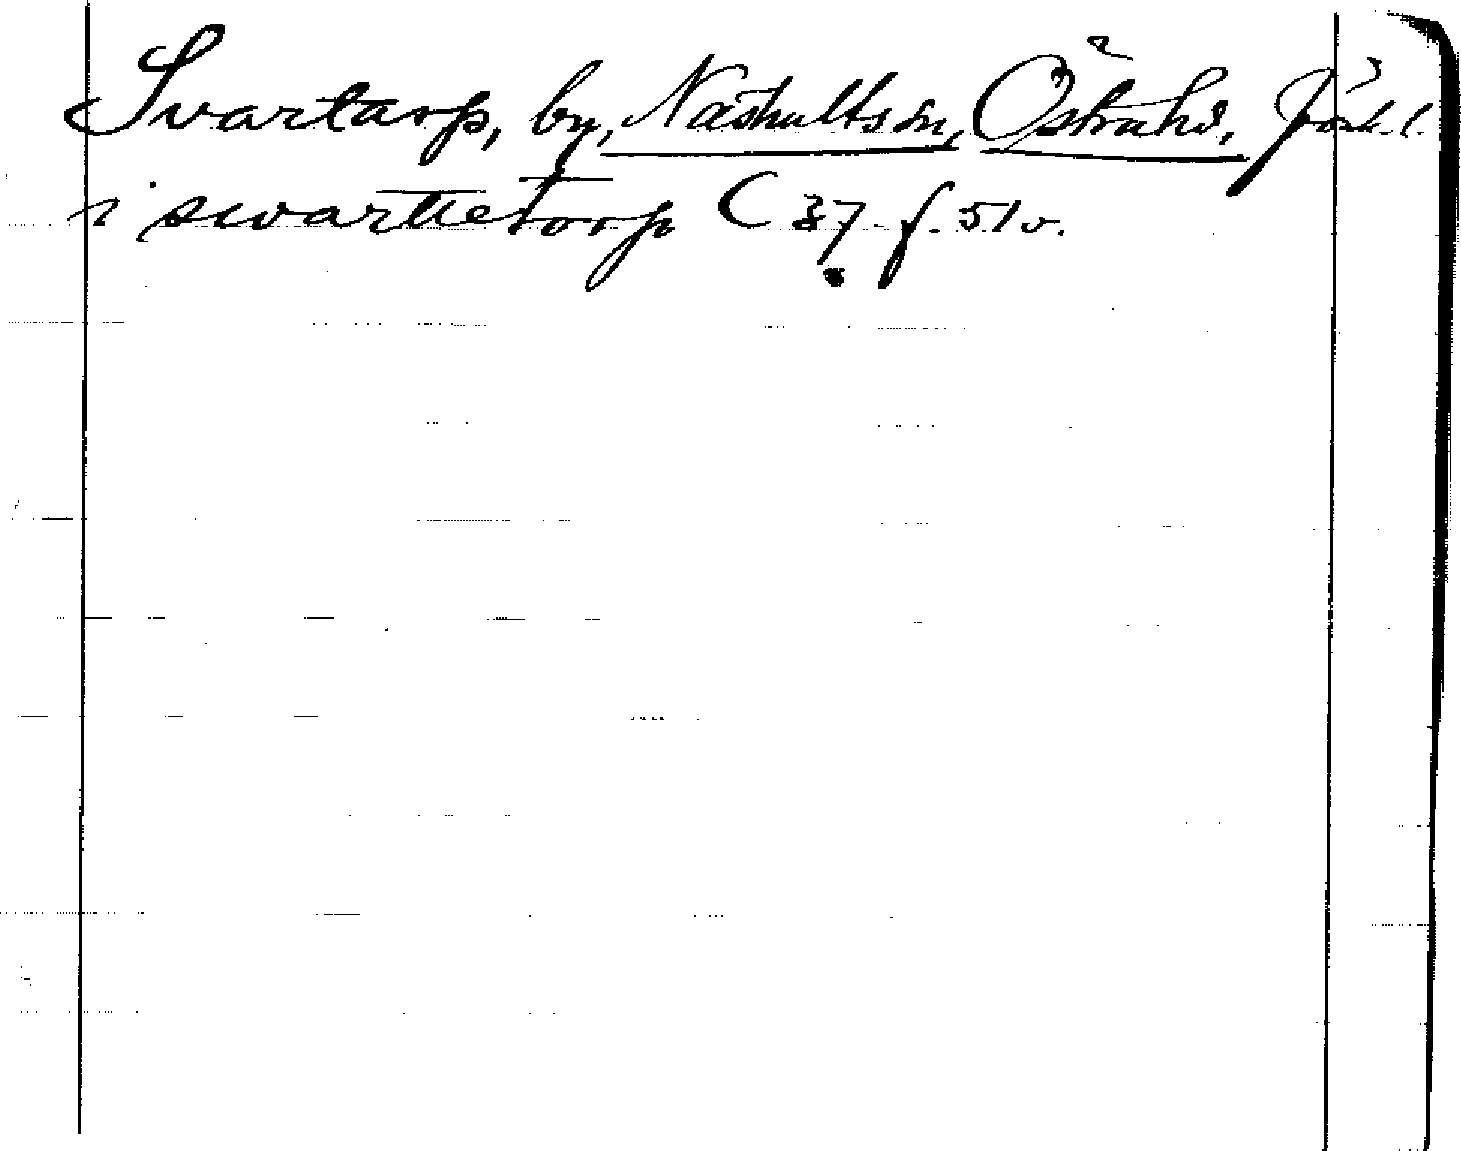 Svartarp, by, Näshults sn, Östra hd, Jönk. l.
i swarttetorp C 37 f. 51 v.